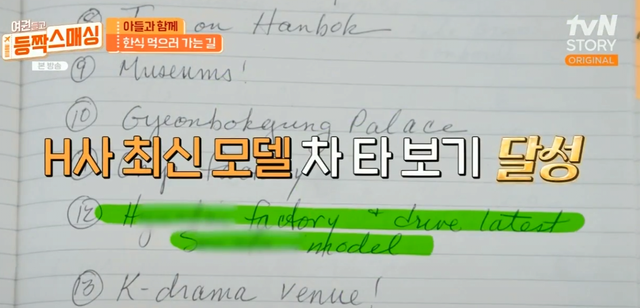 여권들고
등짝스매싱
본 방송
아들과 함께
한식 먹으러 가는 길
tvN
STORY
ORIGINAL
Try on Hanbok
⑨ Museums!
⑩ Gyeonbokgung Palace
H사 최신 모델 차 타 보기 달성
⑫ H factory + drive latest
S model
⑬ K-drama venue!